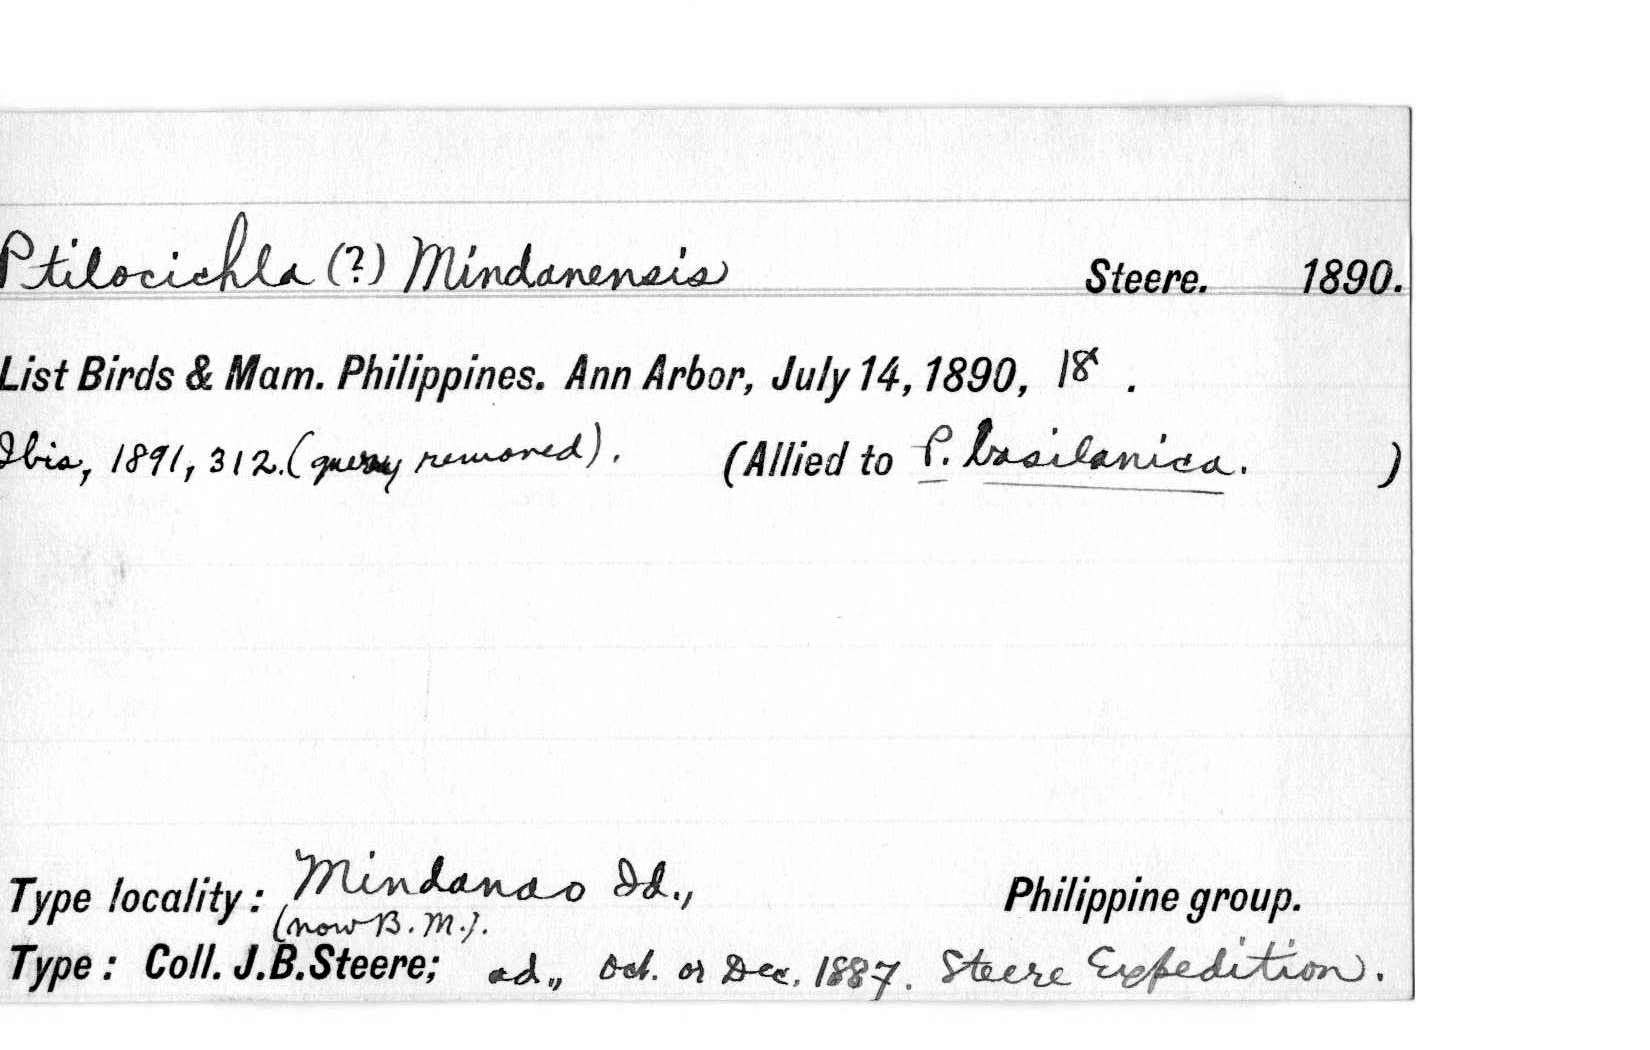 Ptilocichla (?) Mindanensis Steere. 1890.
List Birds & Mam. Philippines. Ann Arbor, July 14, 1890, 18 .
Ibis, 1891, 312. (query removed). (Allied to P. basilanica. )
Type locality: Mindanao Id., Philippine group.
(now B.M.).
Type: Coll. J.B.Steere; ad., Oct. or Dec. 1887. Steere Expedition.